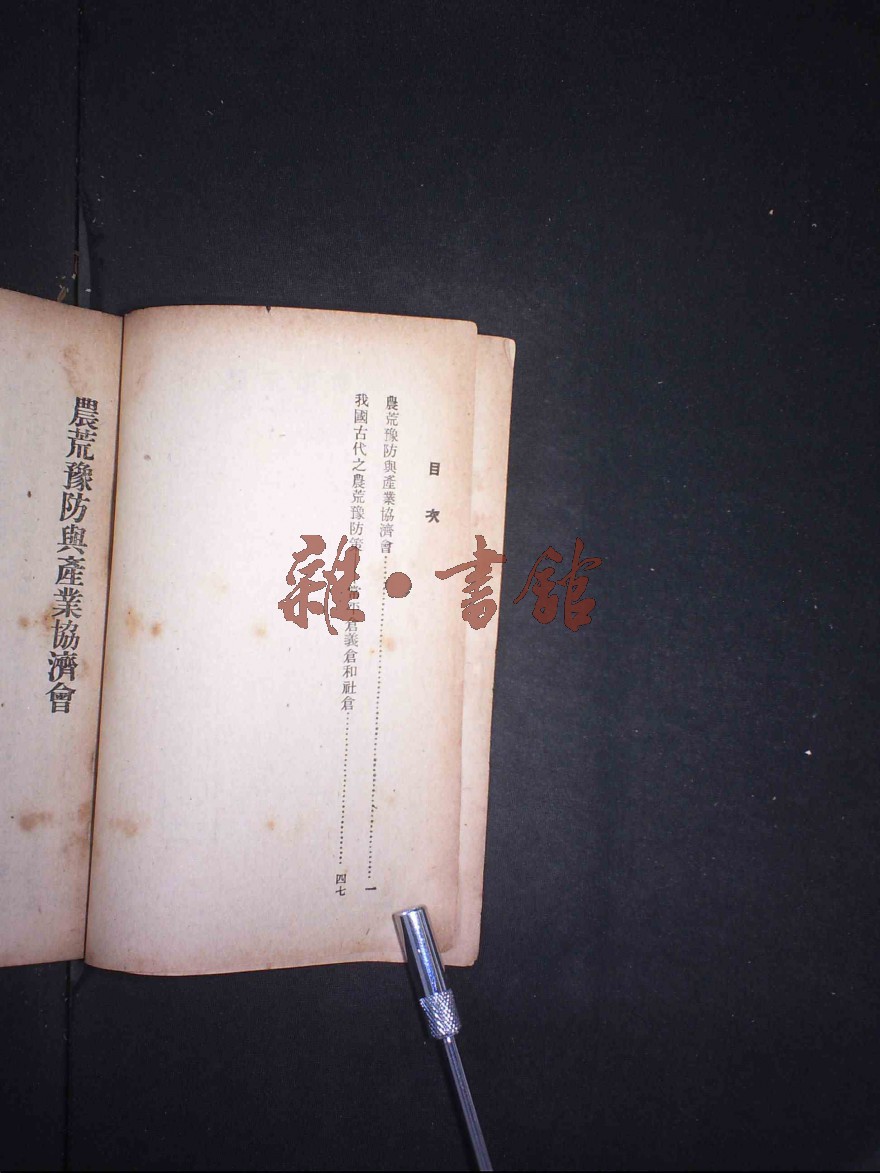 目次
農荒豫防與產業協濟會 一
我國古代之農荒豫防策 倉義倉和社倉 四七
農荒豫防與產業協濟會
雜·書館